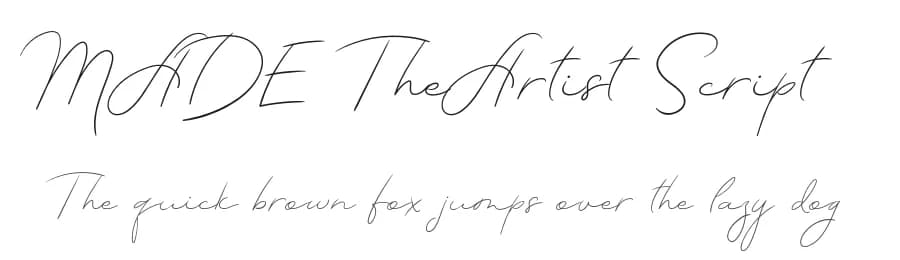 MADE TheArtist Script
The quick brown fox jumps over the lazy dog